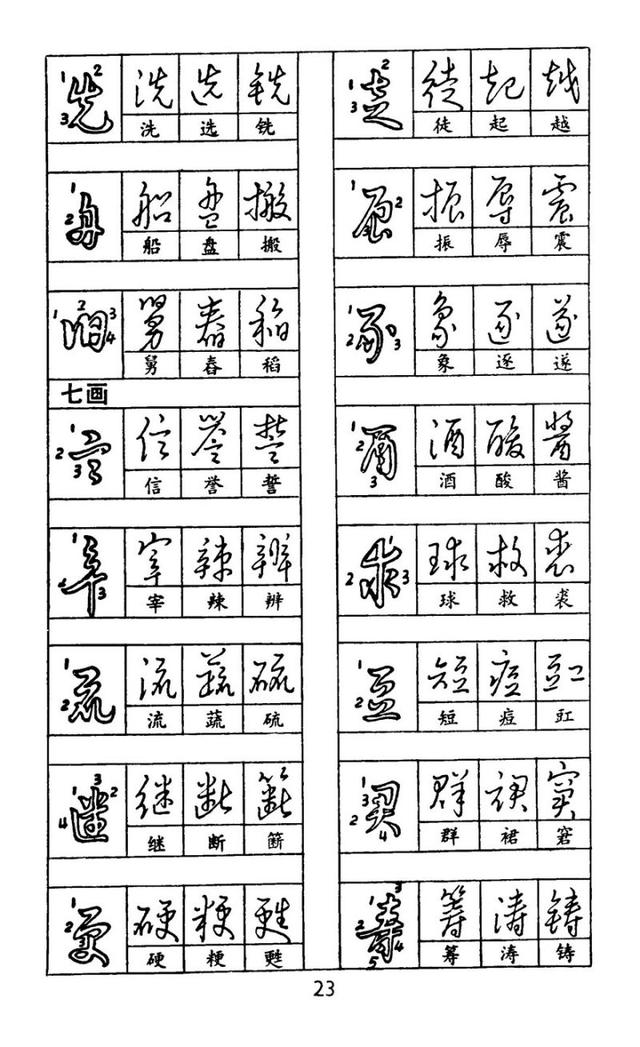 先 洗 选 铣
洗 选 铣
舟 船 盘 搬
船 盘 搬
臼 舅 舂 稻
舅 舂 稻
七画
言 信 誉 誓
信 誉 誓
辛 宰 辣 辨
宰 辣 辨
㐬 流 蔬 硫
流 蔬 硫
继 断 簖
继 断 簖
更 硬 粳 甦
硬 粳 甦
走 徒 起 越
徒 起 越
辰 振 辱 震
振 辱 震
豕 象 逐 遂
象 逐 遂
酉 酒 酸 酱
酒 酸 酱
求 球 救 裘
球 救 裘
豆 短 痘 豇
短 痘 豇
君 群 裙 窘
群 裙 窘
寿 筹 涛 铸
筹 涛 铸
23